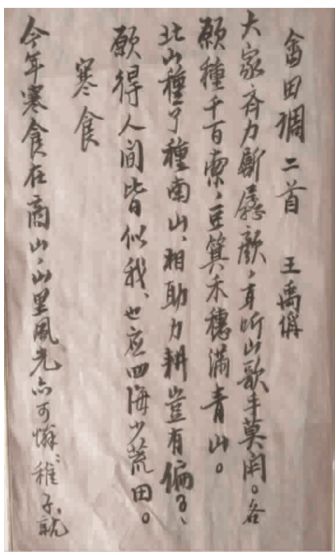 畬田調二首 王禹偁
大家齊力斸孱顏，耳听山歌手莫闲。各
願種千百索，豆萁禾穗滿青山。
北山種了種南山、相助力耕豈有偏？、
願得人间皆似我、也应四海少荒田。
寒食
今年寒食在商山，山里風光亦可憐：稚子就